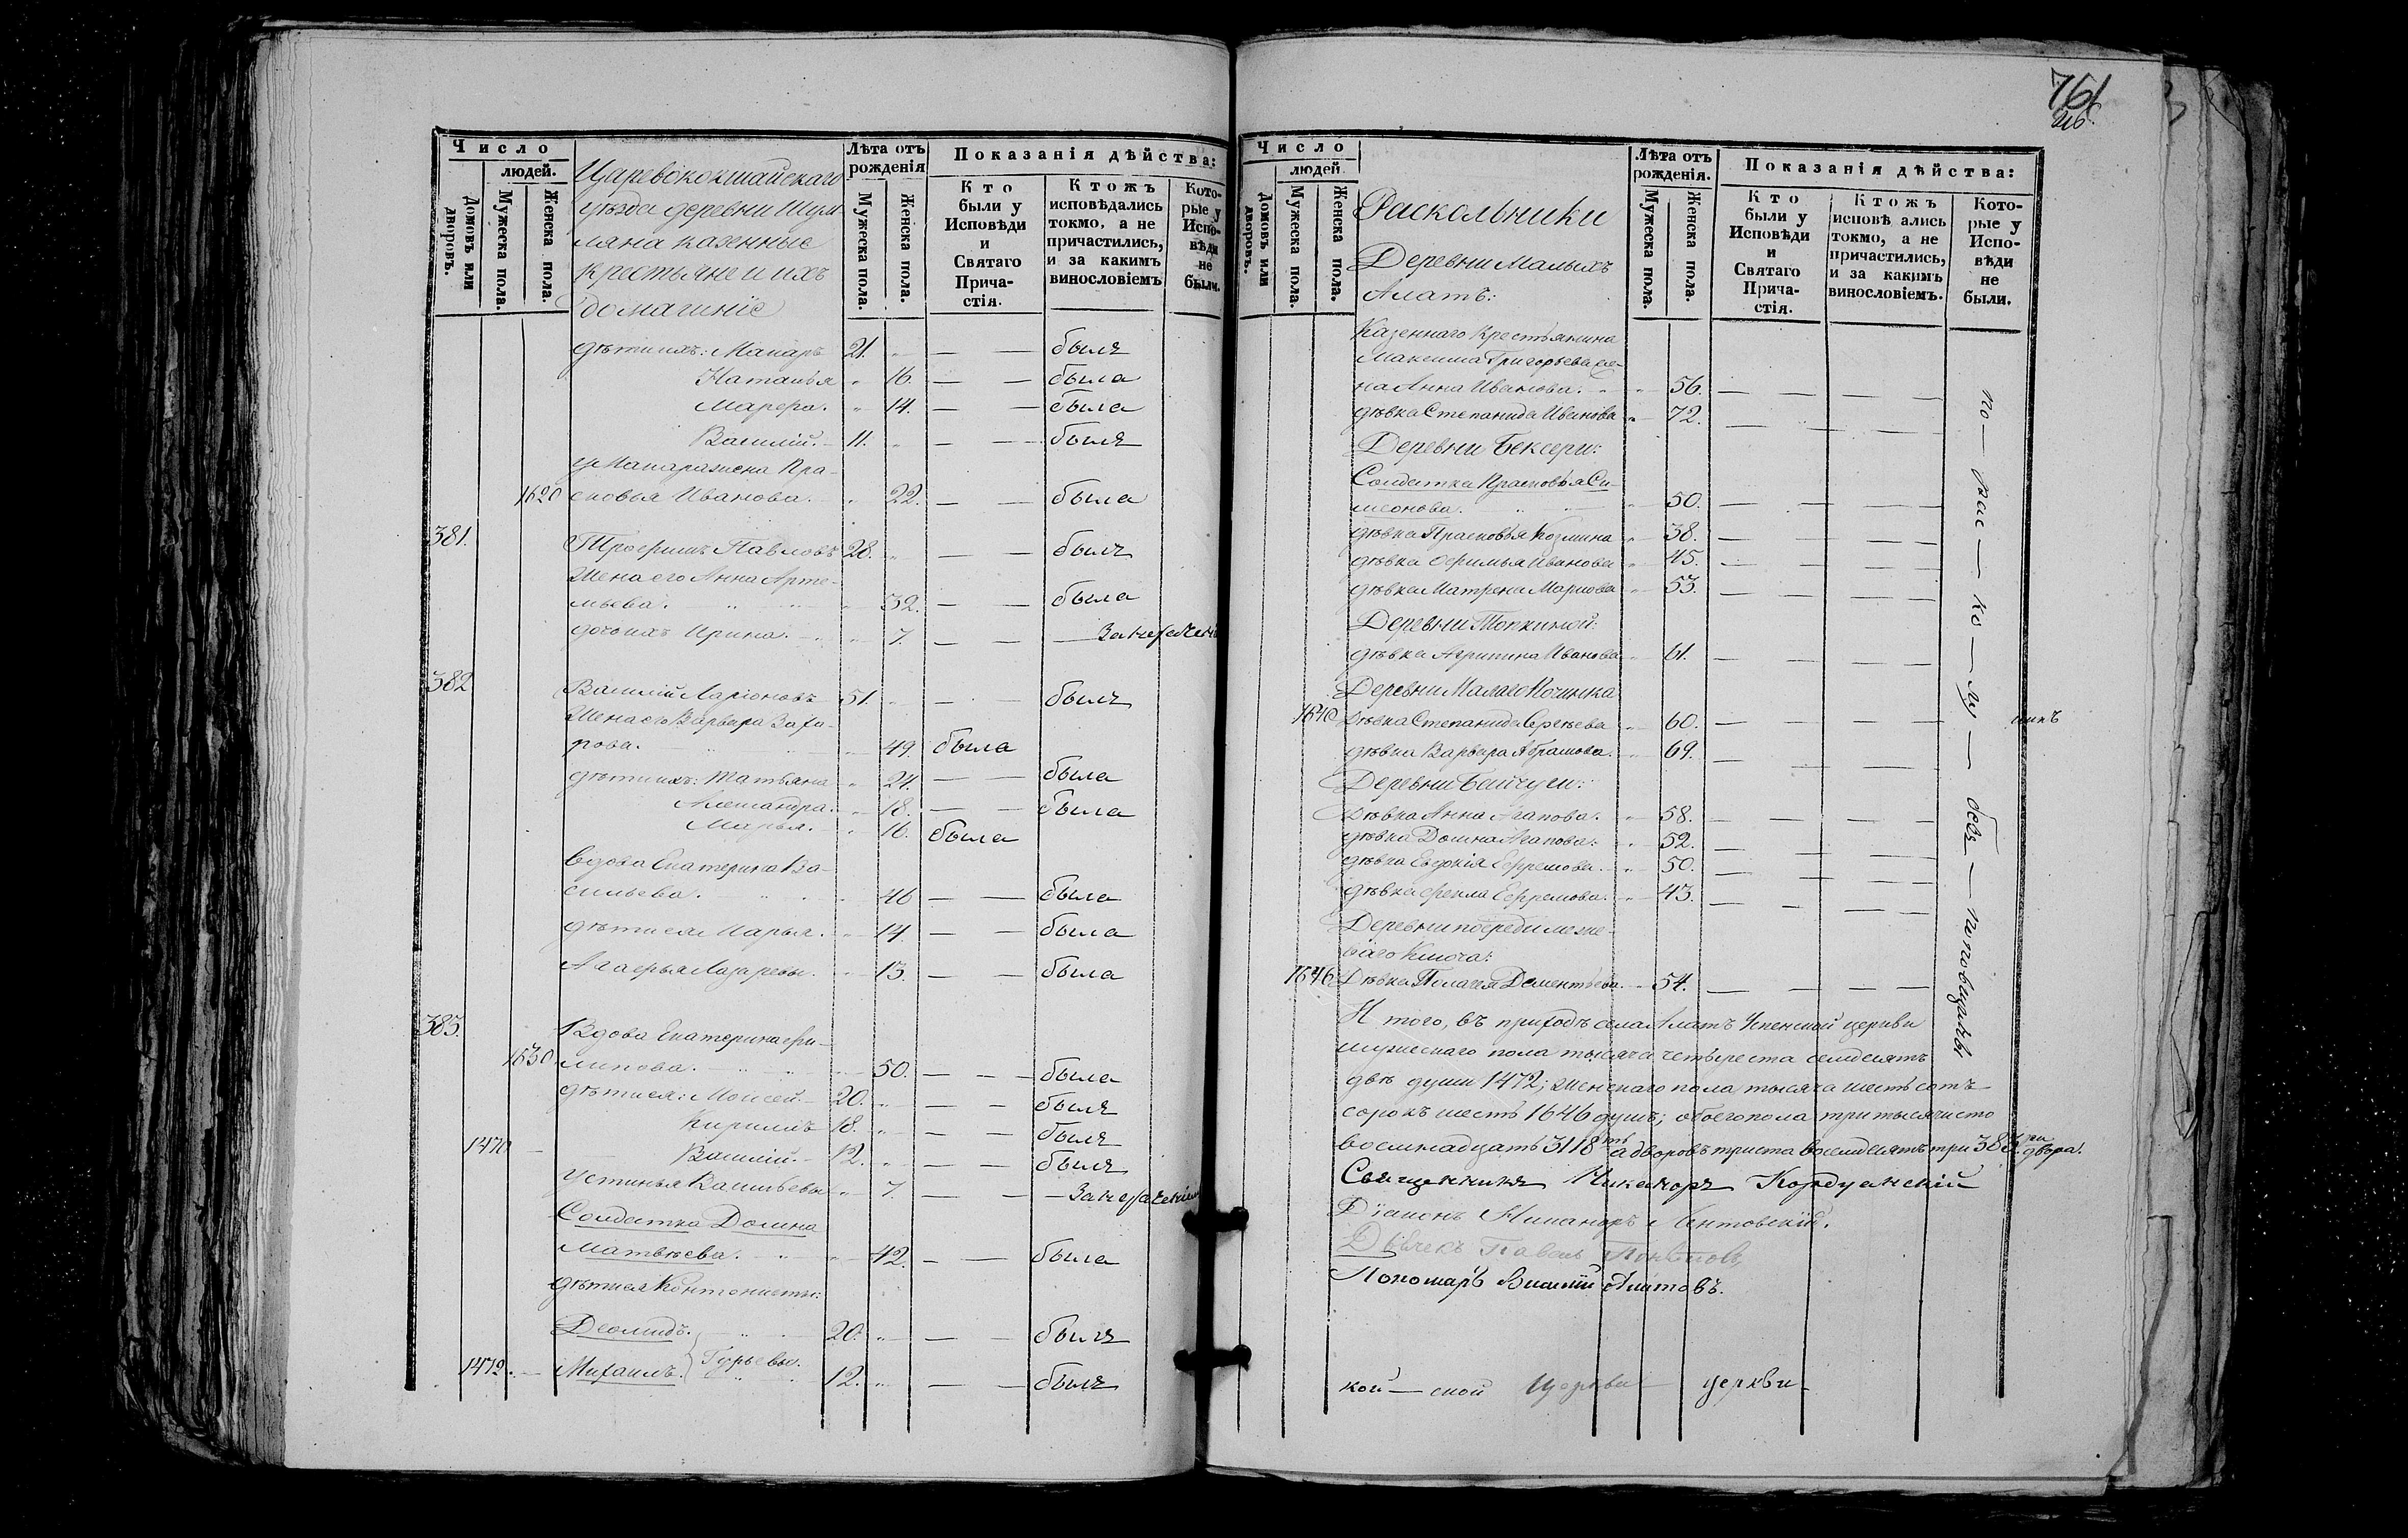 Число
людей.
Домовъ или дворовъ.
Мужеска пола.
Женска пола.
Царевококшайскаго
уѣзда деревни Шум
ляна казенные
крестьяне и ихъ
домашніе
Лѣта отъ рожденія
Мужеска пола.
Женска пола.
Показанія дѣйства:
Кто были у Исповѣди и Святаго Прича-стія.
Ктожъ исповѣдались токмо, а не причастились, и за какимъ винословіемъ
Кото-рые у Испо-вѣди не были.
дѣти ихъ: Макаръ 21. — — былъ
Наталья 16. — — была
Марфа. 14. — — была
Василій. 11. — — былъ
у Макара жена Пра-
1620 сковья Иванова. 22. — — была
381. Трофимъ Павловъ 28. — — былъ
Жена его Анна Арте-
мьева. 32. — — была
дочь ихъ Ирина. 7. — —
382 Василій Ларіоновъ 51. — — былъ
Жена его Варвара Заха-
рова. 49. была
дѣти ихъ: Татьяна 24. — — была
Александра. 18. — — была
Марья. 16. была
Вдова Екатерина Ва-
сильева. 46 — — была
дѣти ея Марья. 14. — — была
Агафья Лазаревы. 13. — — была
383. Вдова Екатерина Фи-
1630 липова. 50. — — была
дѣти ея: Моисей. 20. — — былъ
Кирилъ 18. — — былъ
1470 Василій. 12. — — былъ
Устинья Васильевы 7. — —
Солдатка Домна
Матвѣева. 42. — — была
дѣти ея Контонисты:
Деомидъ. 20. — — былъ
Гурьевы.
1472. Михаилъ. 12. — — былъ
761
Число
людей
Домовъ или дворовъ.
Мужеска пола.
Женска пола.
Раскольники
Деревни Малыхъ
Алатъ:
Лѣта отъ рожденія.
Мужеска пола.
Женска пола.
Показанія дѣйства:
Кто были у Исповѣди и Святаго Прича-стія.
Ктожъ исповѣ ались токмо, а не причастились, и за какимъ винословіемъ.
Кото-рые у Испо-вѣди не были.
Казеннаго Крестьянина
Максима Григорьева же-
на Анна Иванова. 56. — — — —
дѣвка Степанида Иванова 72. — — — —
Деревни Бексери:
Солдатка Прасковья Си-
меонова. 50. — — — —
дѣвка Прасковья Козмина 38. — — — —
дѣвка Офимья Иванова 45. — — — —
дѣвка Матрена Маркова 53. — — — —
Деревни Топкиной:
дѣвка Агрипина Иванова 61. — — — —
Деревни Малаго Починка
1640 Дѣвка Степанида Сергѣева 60. — — — —
дѣвка Варвара Абрамова. 69. — — — —
Деревни Байчуги:
Дѣвка Анна Агапова. 58. — — — —
дѣвка Домна Агапова: 52. — — — —
дѣвка Евдокія Ефремова. 50. — — — —
дѣвка Фекла Ефремова. 43. — — — —
Деревни посреди меже-
ваго Ключа:
1646 Дѣвка Пелагея Дементьева. 54. — — — —
по — рас — ко — лу — безъ — поповщины
И того, въ приходѣ села Алатъ Успенской церкви
мужескаго пола тысяча четыреста семдесятъ
двѣ души 1472; женскаго пола тысяча шесть сотъ
сорокъ шесть 1646 душъ; обоего пола три тысячи сто
восемнадцать 3118ть а дворовъ триста восемдесятъ три 383ри двора.
Священникъ Никаноръ Кордуанскій
Діаконъ Никаноръ Лентовскій.
Дьячекъ Павелъ
Пономарь Василій
кой — ской Церкви церкви